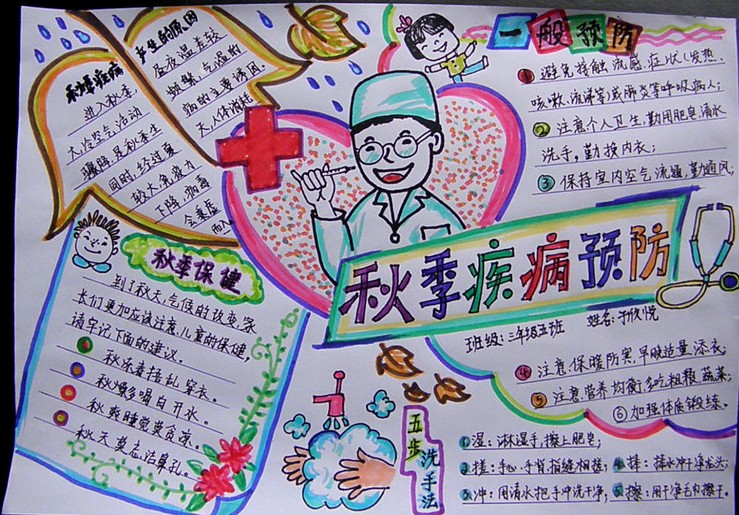 产生的原因
昼夜温差较
频繁,气温的
病的主要诱因。
秋季疾病
进入秋季,
大冷空气活动
骤降,是秋季生
同时,经过夏
较大,免疫力
下降,病毒
会乘虚
而入
一般预防
①避免接触流感,症状(发热、
咳嗽、流涕等)或肺炎等呼吸病人;
②注意个人卫生,勤用肥皂,清水
洗手,勤换内衣;
③保持室内空气流通,勤通风;
秋季疾病预防
班级:三年级五班 姓名:于欣悦
④注意保暖防寒,早晚适量添衣;
⑤注意营养均衡,多吃粗粮,蔬菜;
⑥加强体质锻练。
秋季保健
到了秋天,气候的改变,家
长们更加应该注意儿童的保健,
请牢记下面的建议。
秋冻莫捂乱穿衣。
秋燥多喝白开水。
秋爽睡觉莫贪凉。
秋天莫忘洁鼻孔。
五步洗手法
1.湿:淋湿手,擦上肥皂;
2.搓:手心、手背、指缝相搓;
3.冲:用清水把手冲洗干净;
4.捧:捧水冲干净龙头;
5.擦:用干净毛巾擦干。